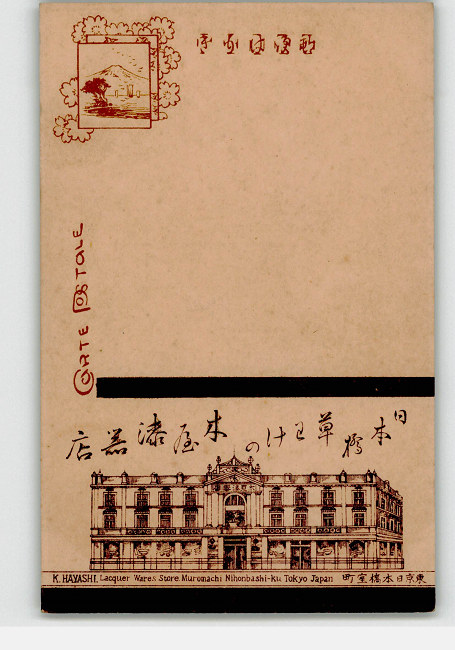 郵便はかき
CARTE POSTALE
日本橋草わけの木屋漆器店
K. HAYASHI, Lacquer Wares Store Muromachi Nihonbashi-ku Tokyo Japan 東京日本橋室町